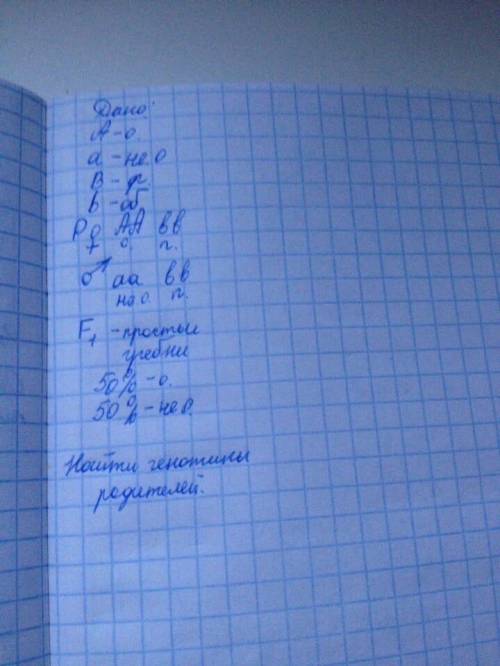 Дано:
А - о.
а - не о
В - ф
b - об
P ♀ АА вв
о. п.
♂ аа вв
не о. п.
F₁ - простые
гребни
50% - о.
50% - не о.
Найти генотипы
родителей.